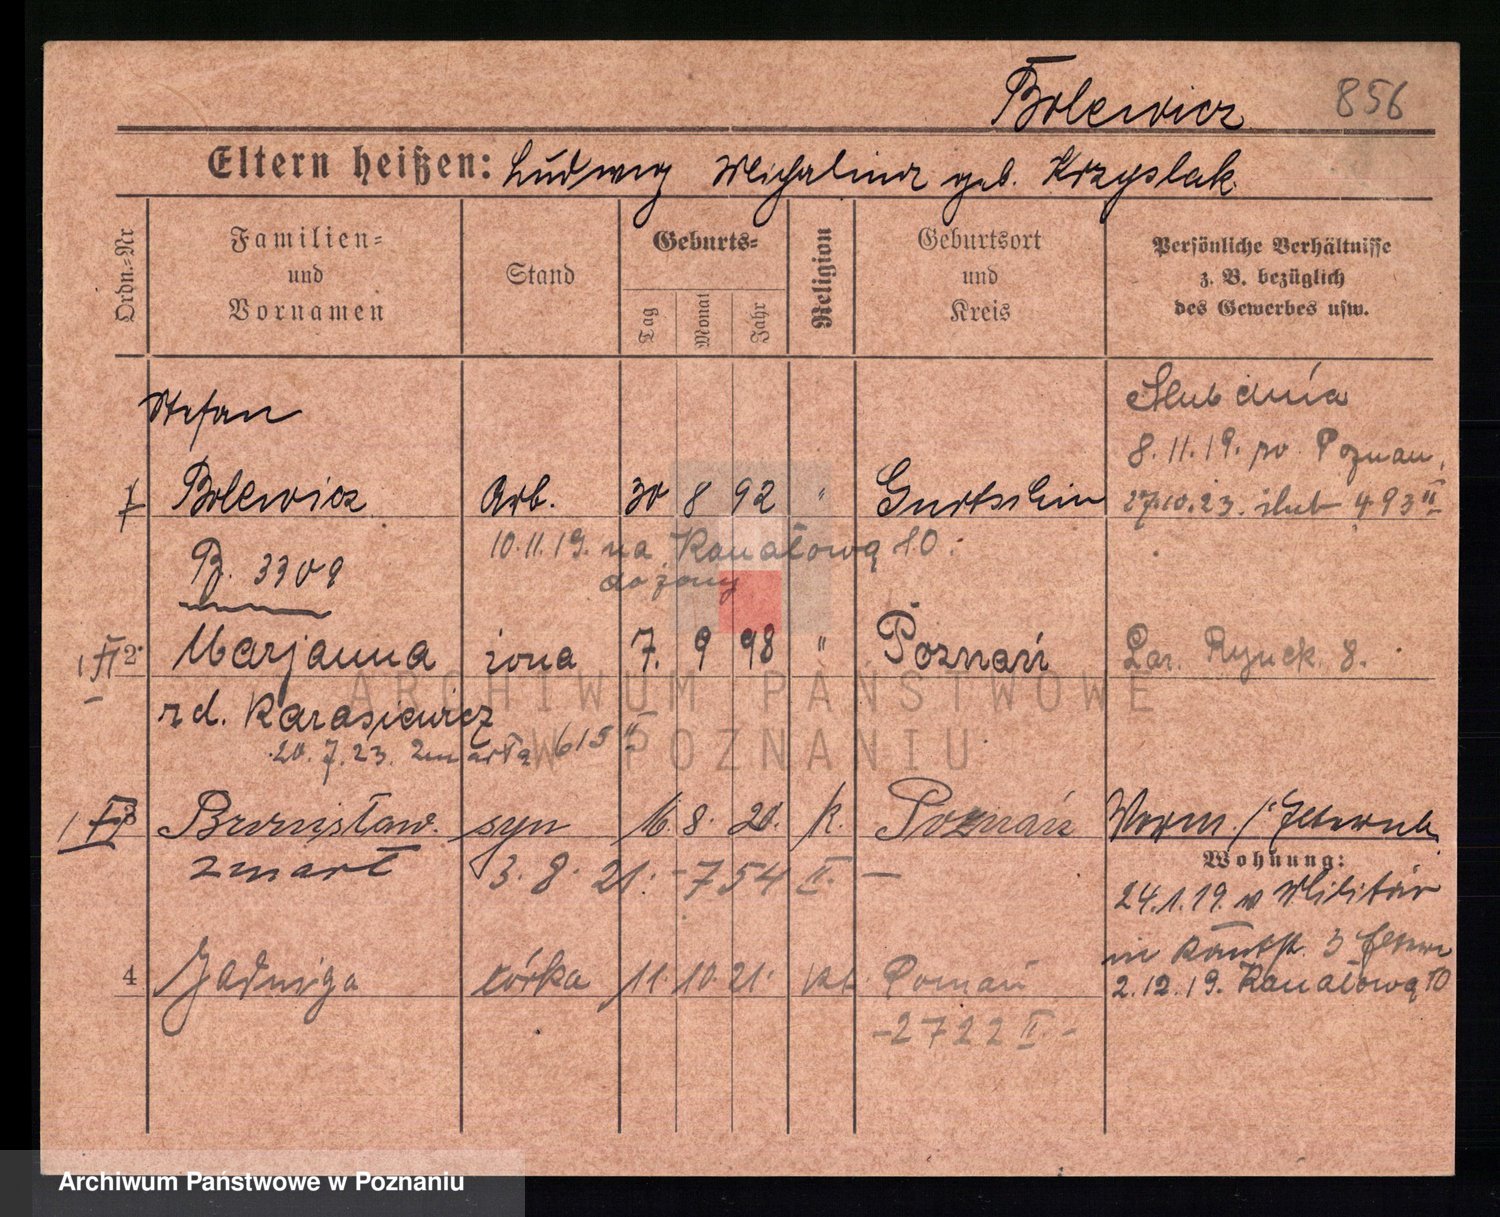 Bolewicz 856
Eltern heißen: Ludwig Michalina geb. Krzyslak
Ordn.-Nr
Familien- und Vornamen
Stand
Geburts-
Tag Monat Jahr
Religion
Geburtsort und Kreis
Persönliche Verhältnisse z. B. bezüglich des Gewerbes usw.
Stefan
Ślub dnia
8.11.19. Poznan
1 Bolewicz Arb. 30 8 92 " Gurtschin 27.10.23. ślub 493 II
10.11.19. na Kanałową 10.
do żony
B. 3309
1 2. Marjanna żona 7. 9 98 " Poznań Łaz. Rynek 8.
rd. Karasiewicz
20.7.23. zmarła 615 II
1 3 Bronisław syn 16. 8. 20. k. Poznań Worm.
zmarł 3. 8. 21. - 754 II. -
Wohnung:
24.1.19. w Militär
in 3
4 Jadwiga córka 11. 10. 21. kt. Poznań 2.12.19. Kanałową 10
- 2722 II -
ARCHIWUM PAŃSTWOWE
W POZNANIU
Archiwum Państwowe w Poznaniu